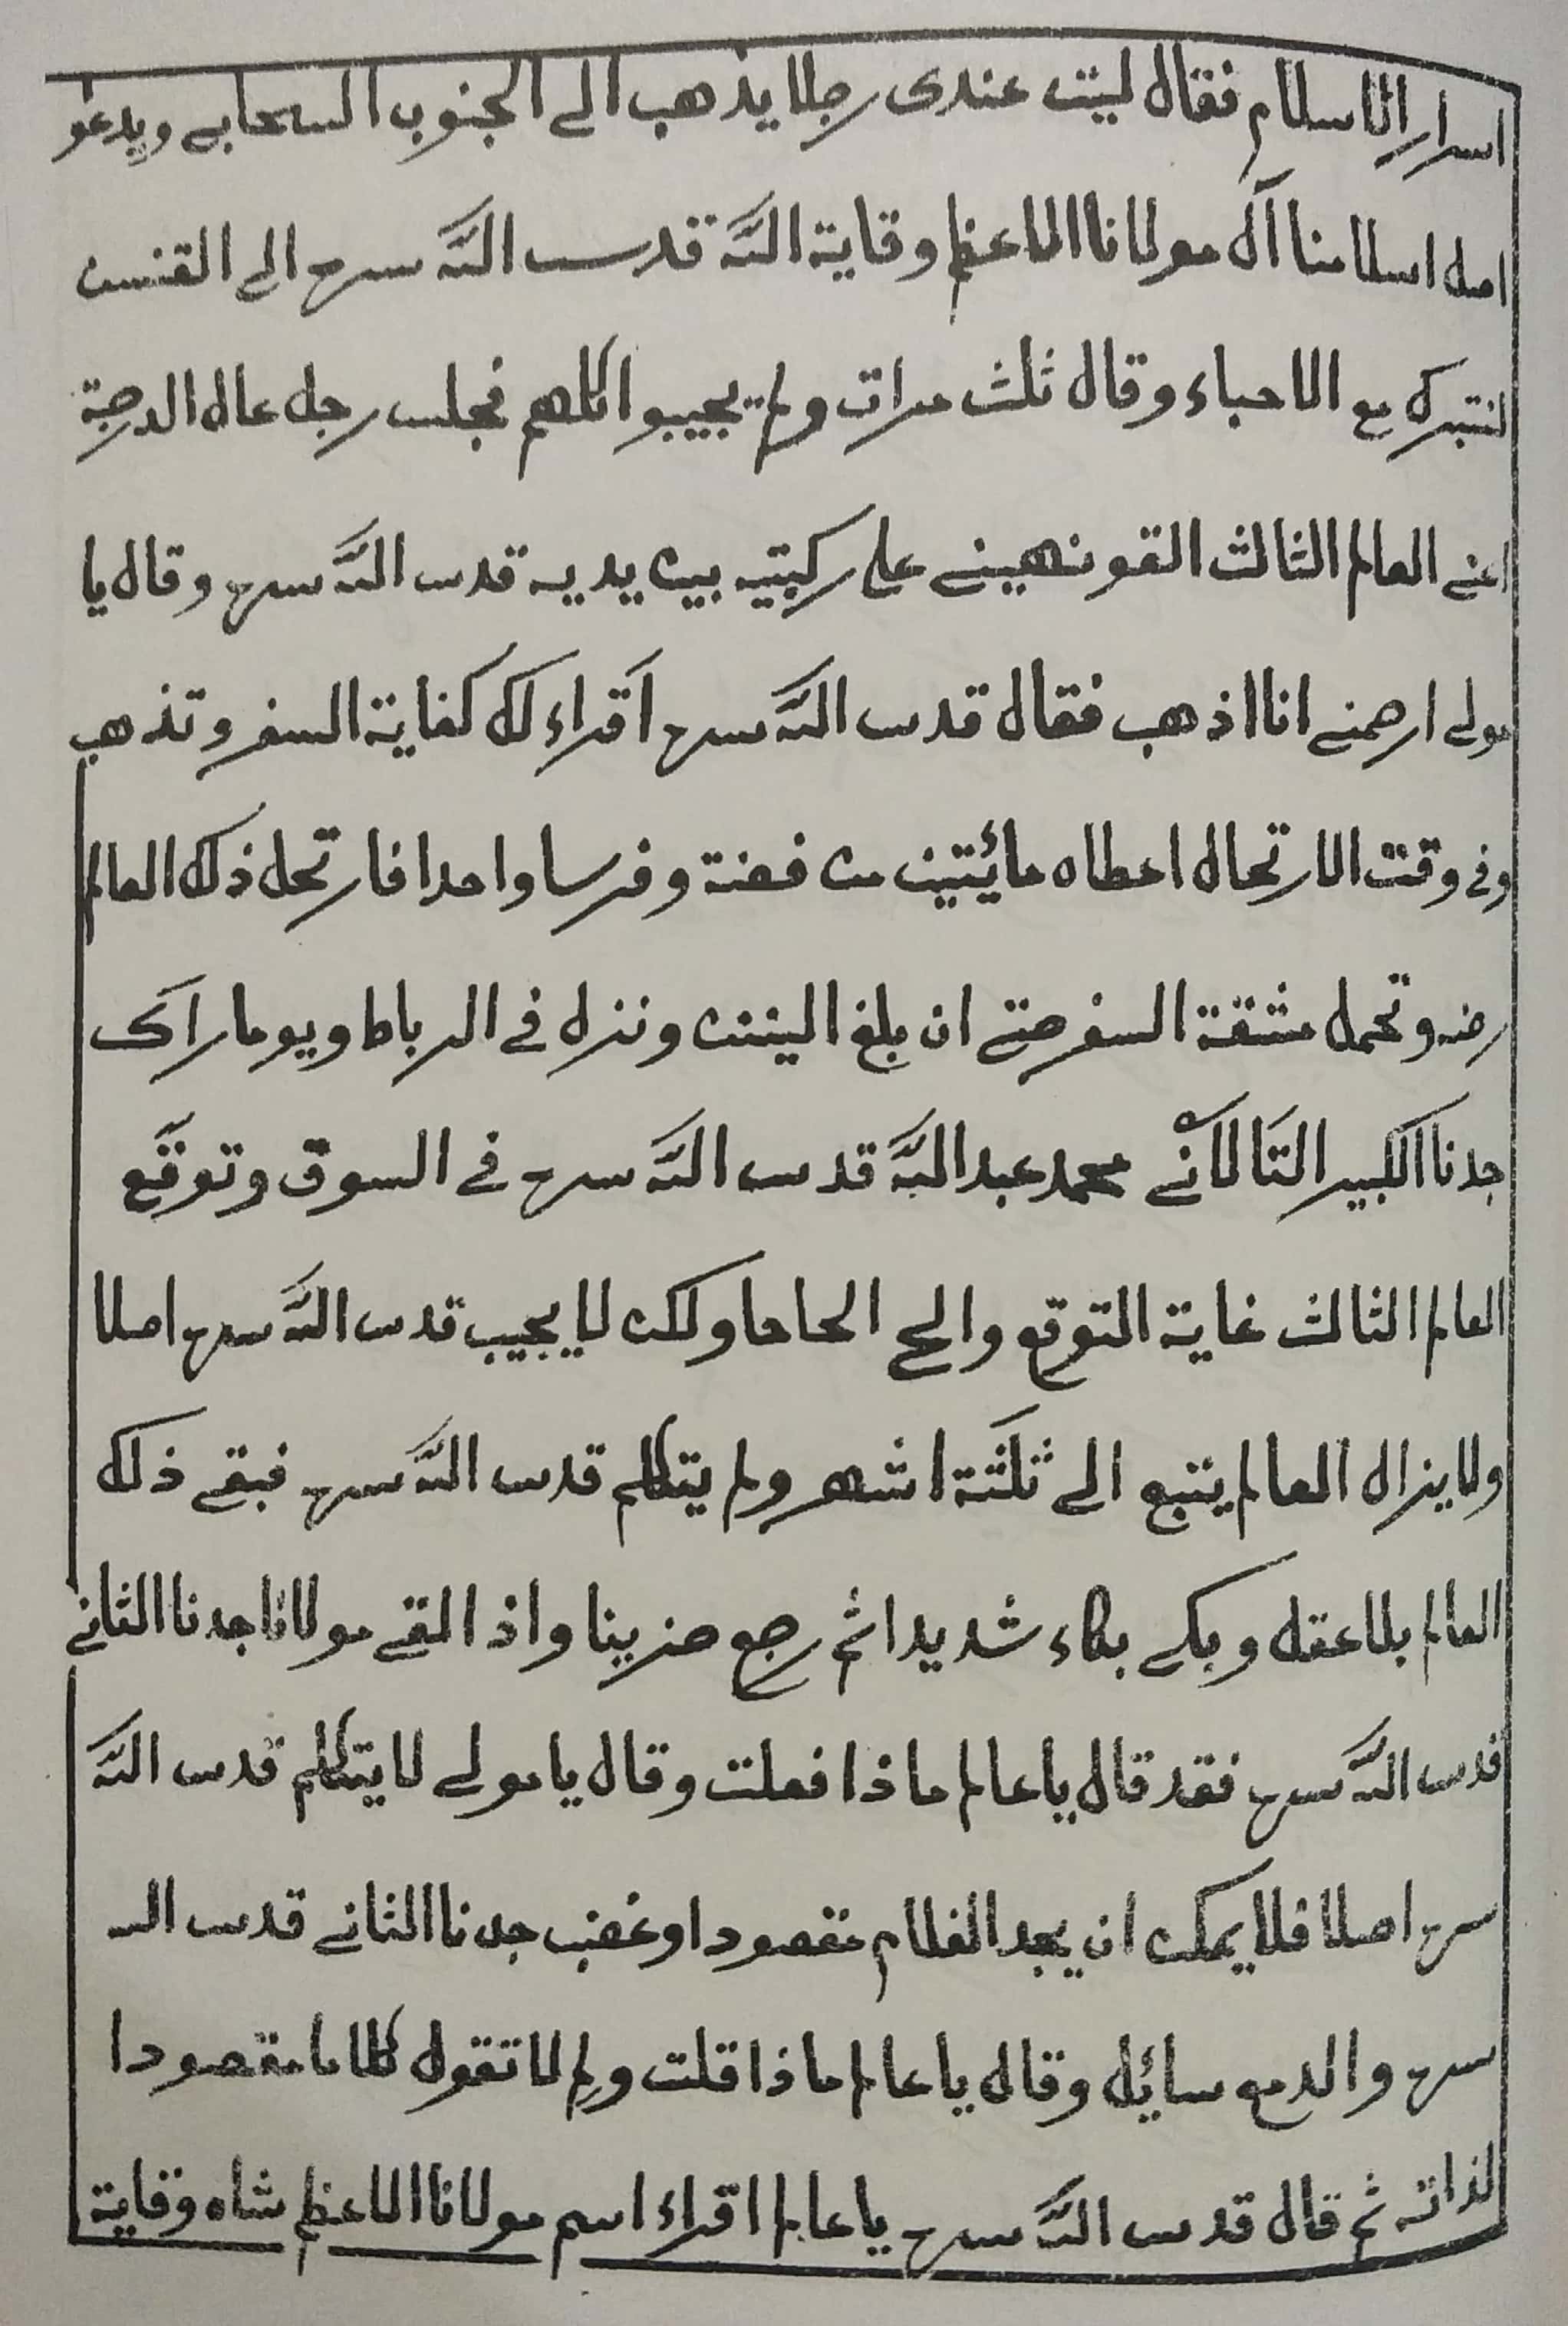 اسرار الاسلام فقال ليت عندى رجلا يذهب الے الجنوب السحابے ويدعو
اصل اسلامنا آل مولانا الاعظم وقاية اللّه قدس اللّه سره الى القنسن
لنتبرك مع الاحباء وقال ثلث مرات ولم يجيبوا كلهم فجلس رجل عال الدرجة
اعنے العالم الثالث القونهينے على ركبتيه بين يديه قدس اللّه سره وقال يا
مولے ارحمنے انا اذهب فقال قدس اللّه سره اَقراء لك كفاية السفر وتذهب
وفى وقت الارتحال اعطاه مائيتين من فضة وفرسا واحدا فارتحل ذلك العالم
رضه وتحمل مشقة السفر حتے ان بلغ الينن ونزل فے الرباط ويوما راك
جدنا الكبير التَالانے محمد عبد اللّه قدس اللّه سره فے السوق وتوقّع
العالم الثالث غاية التوقع والحح الحاحا ولكن لايجيب قدس اللّه سره اصلا
ولا يزال العالم يتبع الے ثلثة اشهر ولم يتكلم قدس اللّه سره فبقے ذلك
العالم بلا عقل وبكے بكاء شديدا ثم رجع حزينا واذ القے مولانا جدنا الثانے
قدس اللّه سره فقد قال يا عالم ما ذا فعلت وقال يا مولے لا يتكلم قدس اللّه
سره اصلا فلا يمكن ان يجد الغلام مقصودا وغضب جدنا الثانے قدس الـ
سره والدمع سائل وقال يا عالم ما ذا قلت ولم لا تقول كلاما مقصودا
لذاته ثم قال قدس اللّه سره يا عالم اقراء اسم مولانا الاعظم شاه وقاية